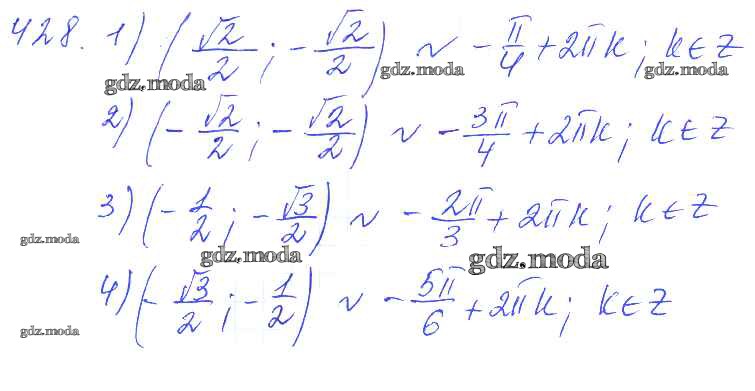 428. 1) (√2/2; -√2/2) ~ -π/4 + 2πk; k∈Z
gdz.moda gdz.moda gdz.moda
2) (-√2/2; -√2/2) ~ -3π/4 + 2πk; k∈Z
3) (-1/2; -√3/2) ~ -2π/3 + 2πk; k∈Z
gdz.moda gdz.moda gdz.moda
4) (-√3/2; -1/2) ~ -5π/6 + 2πk; k∈Z
gdz.moda